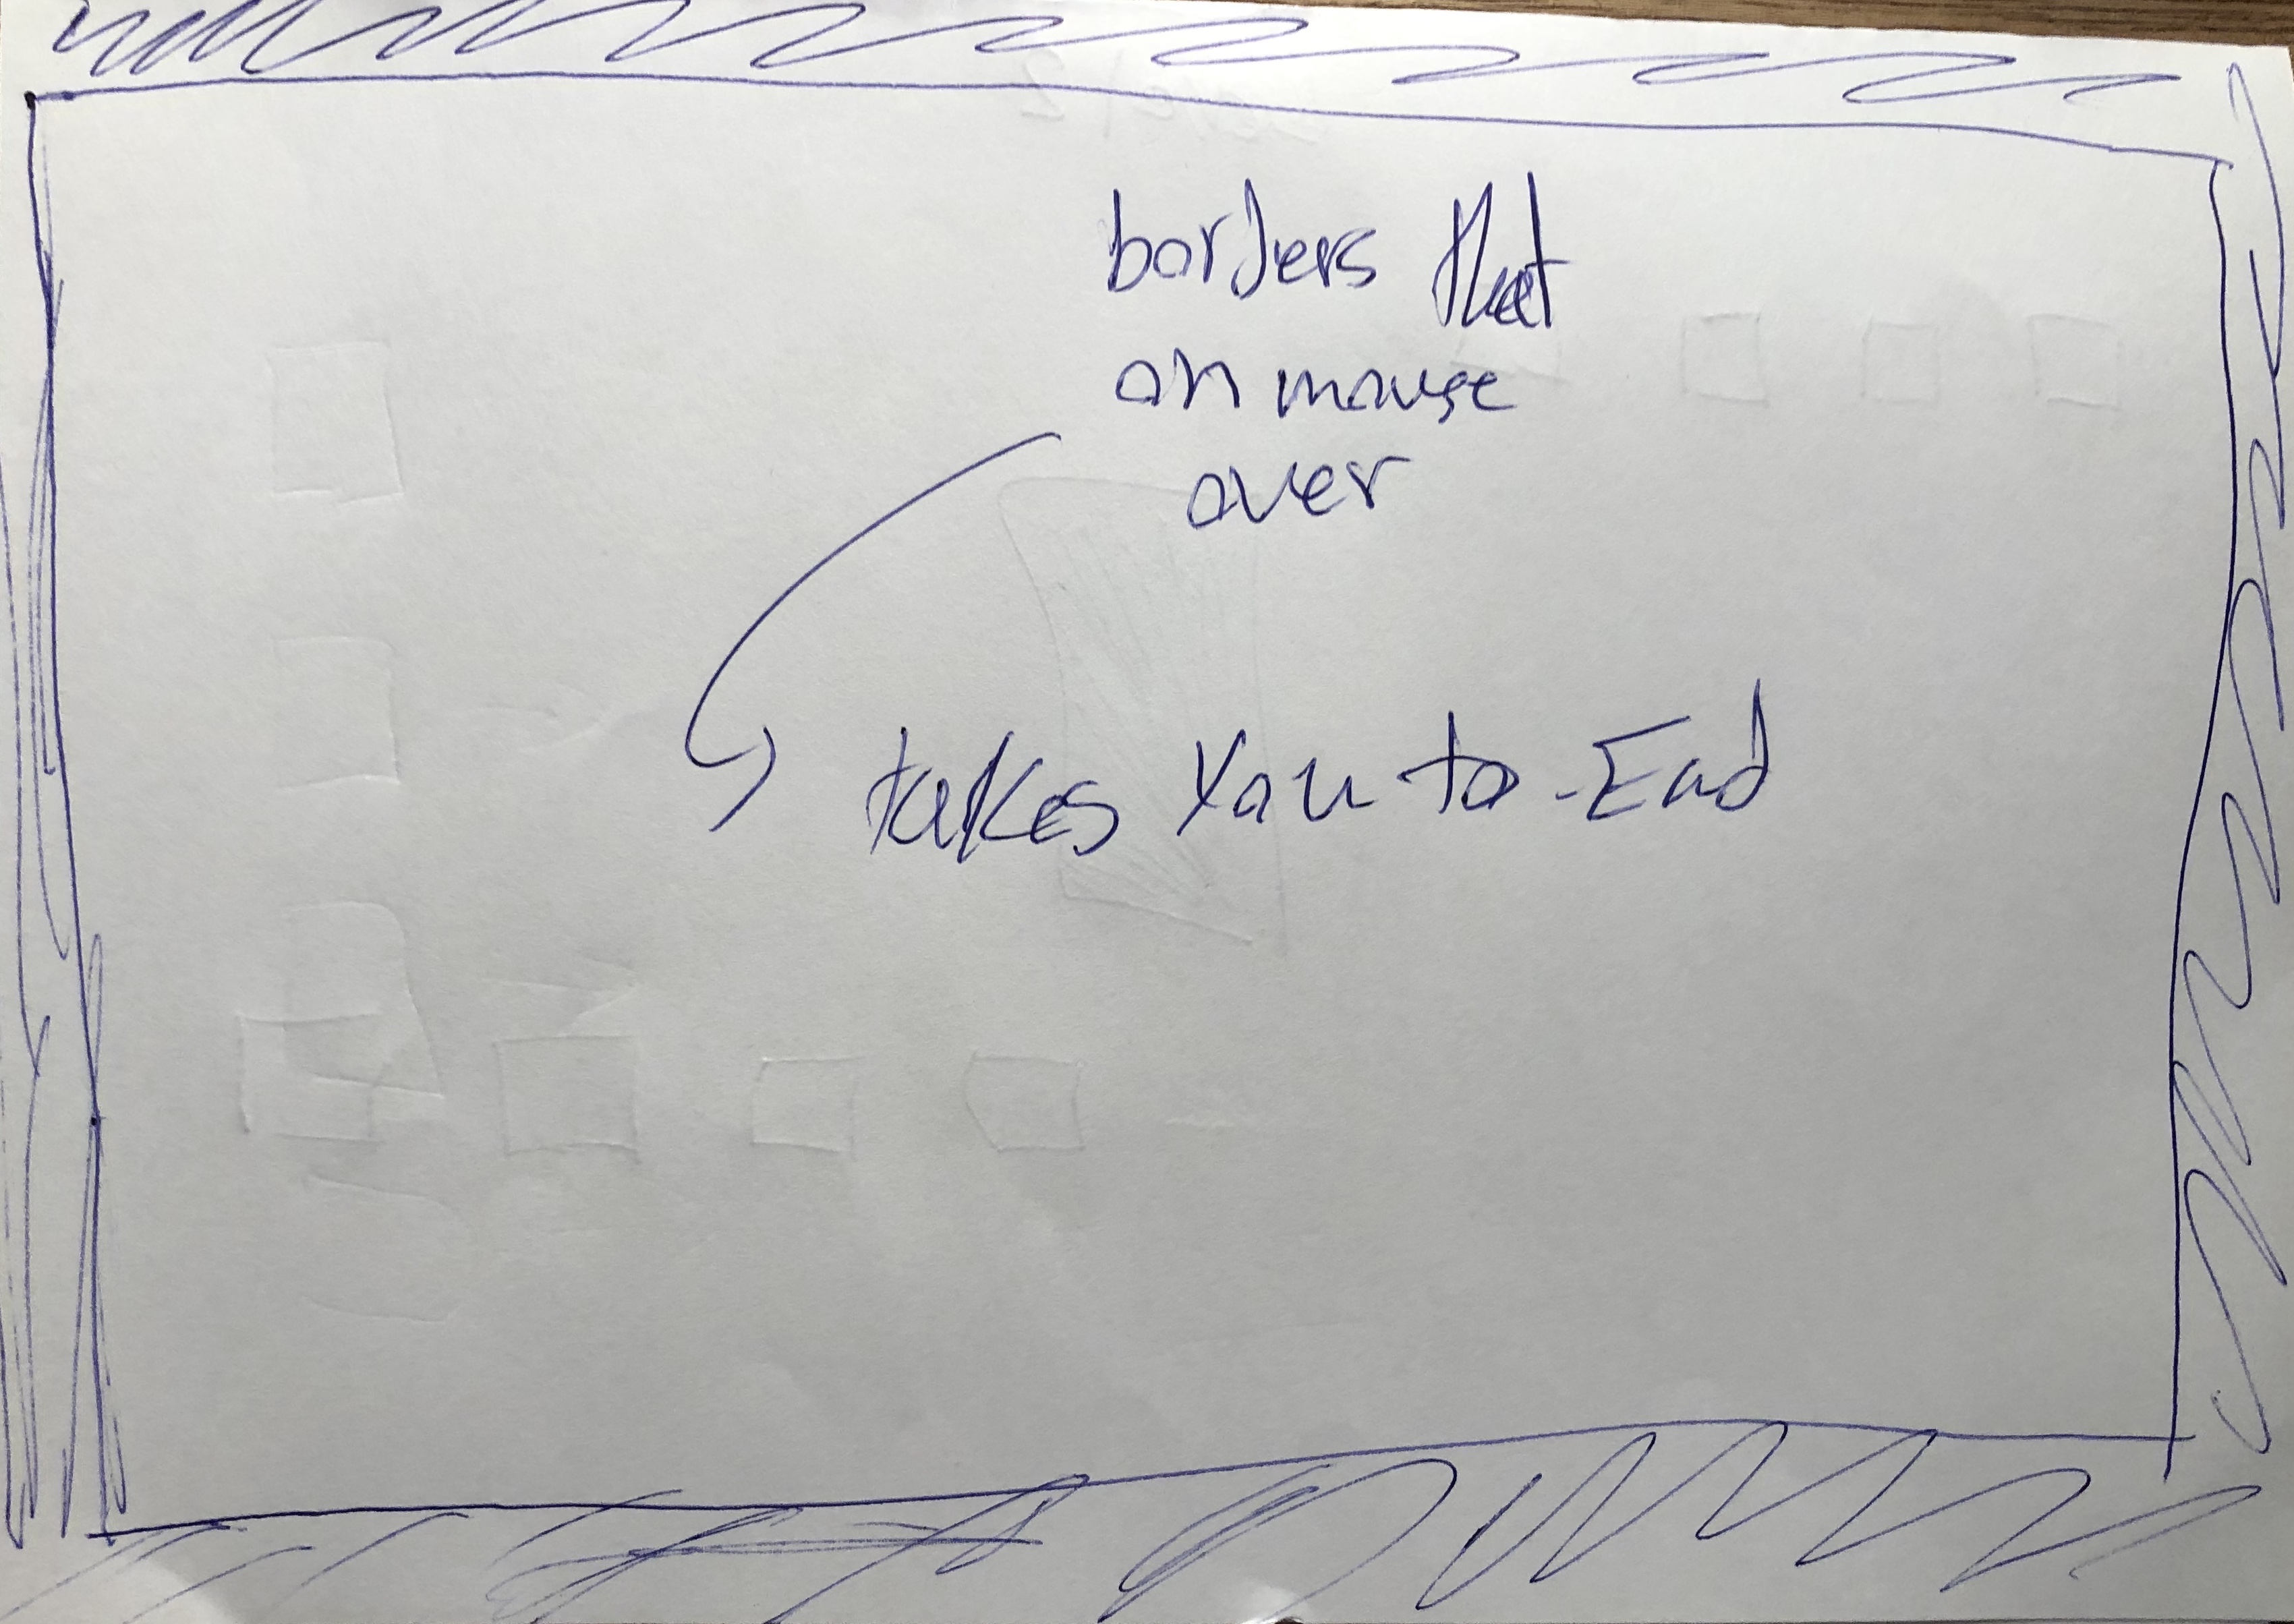 borders that
on mouse
over
takes you to End